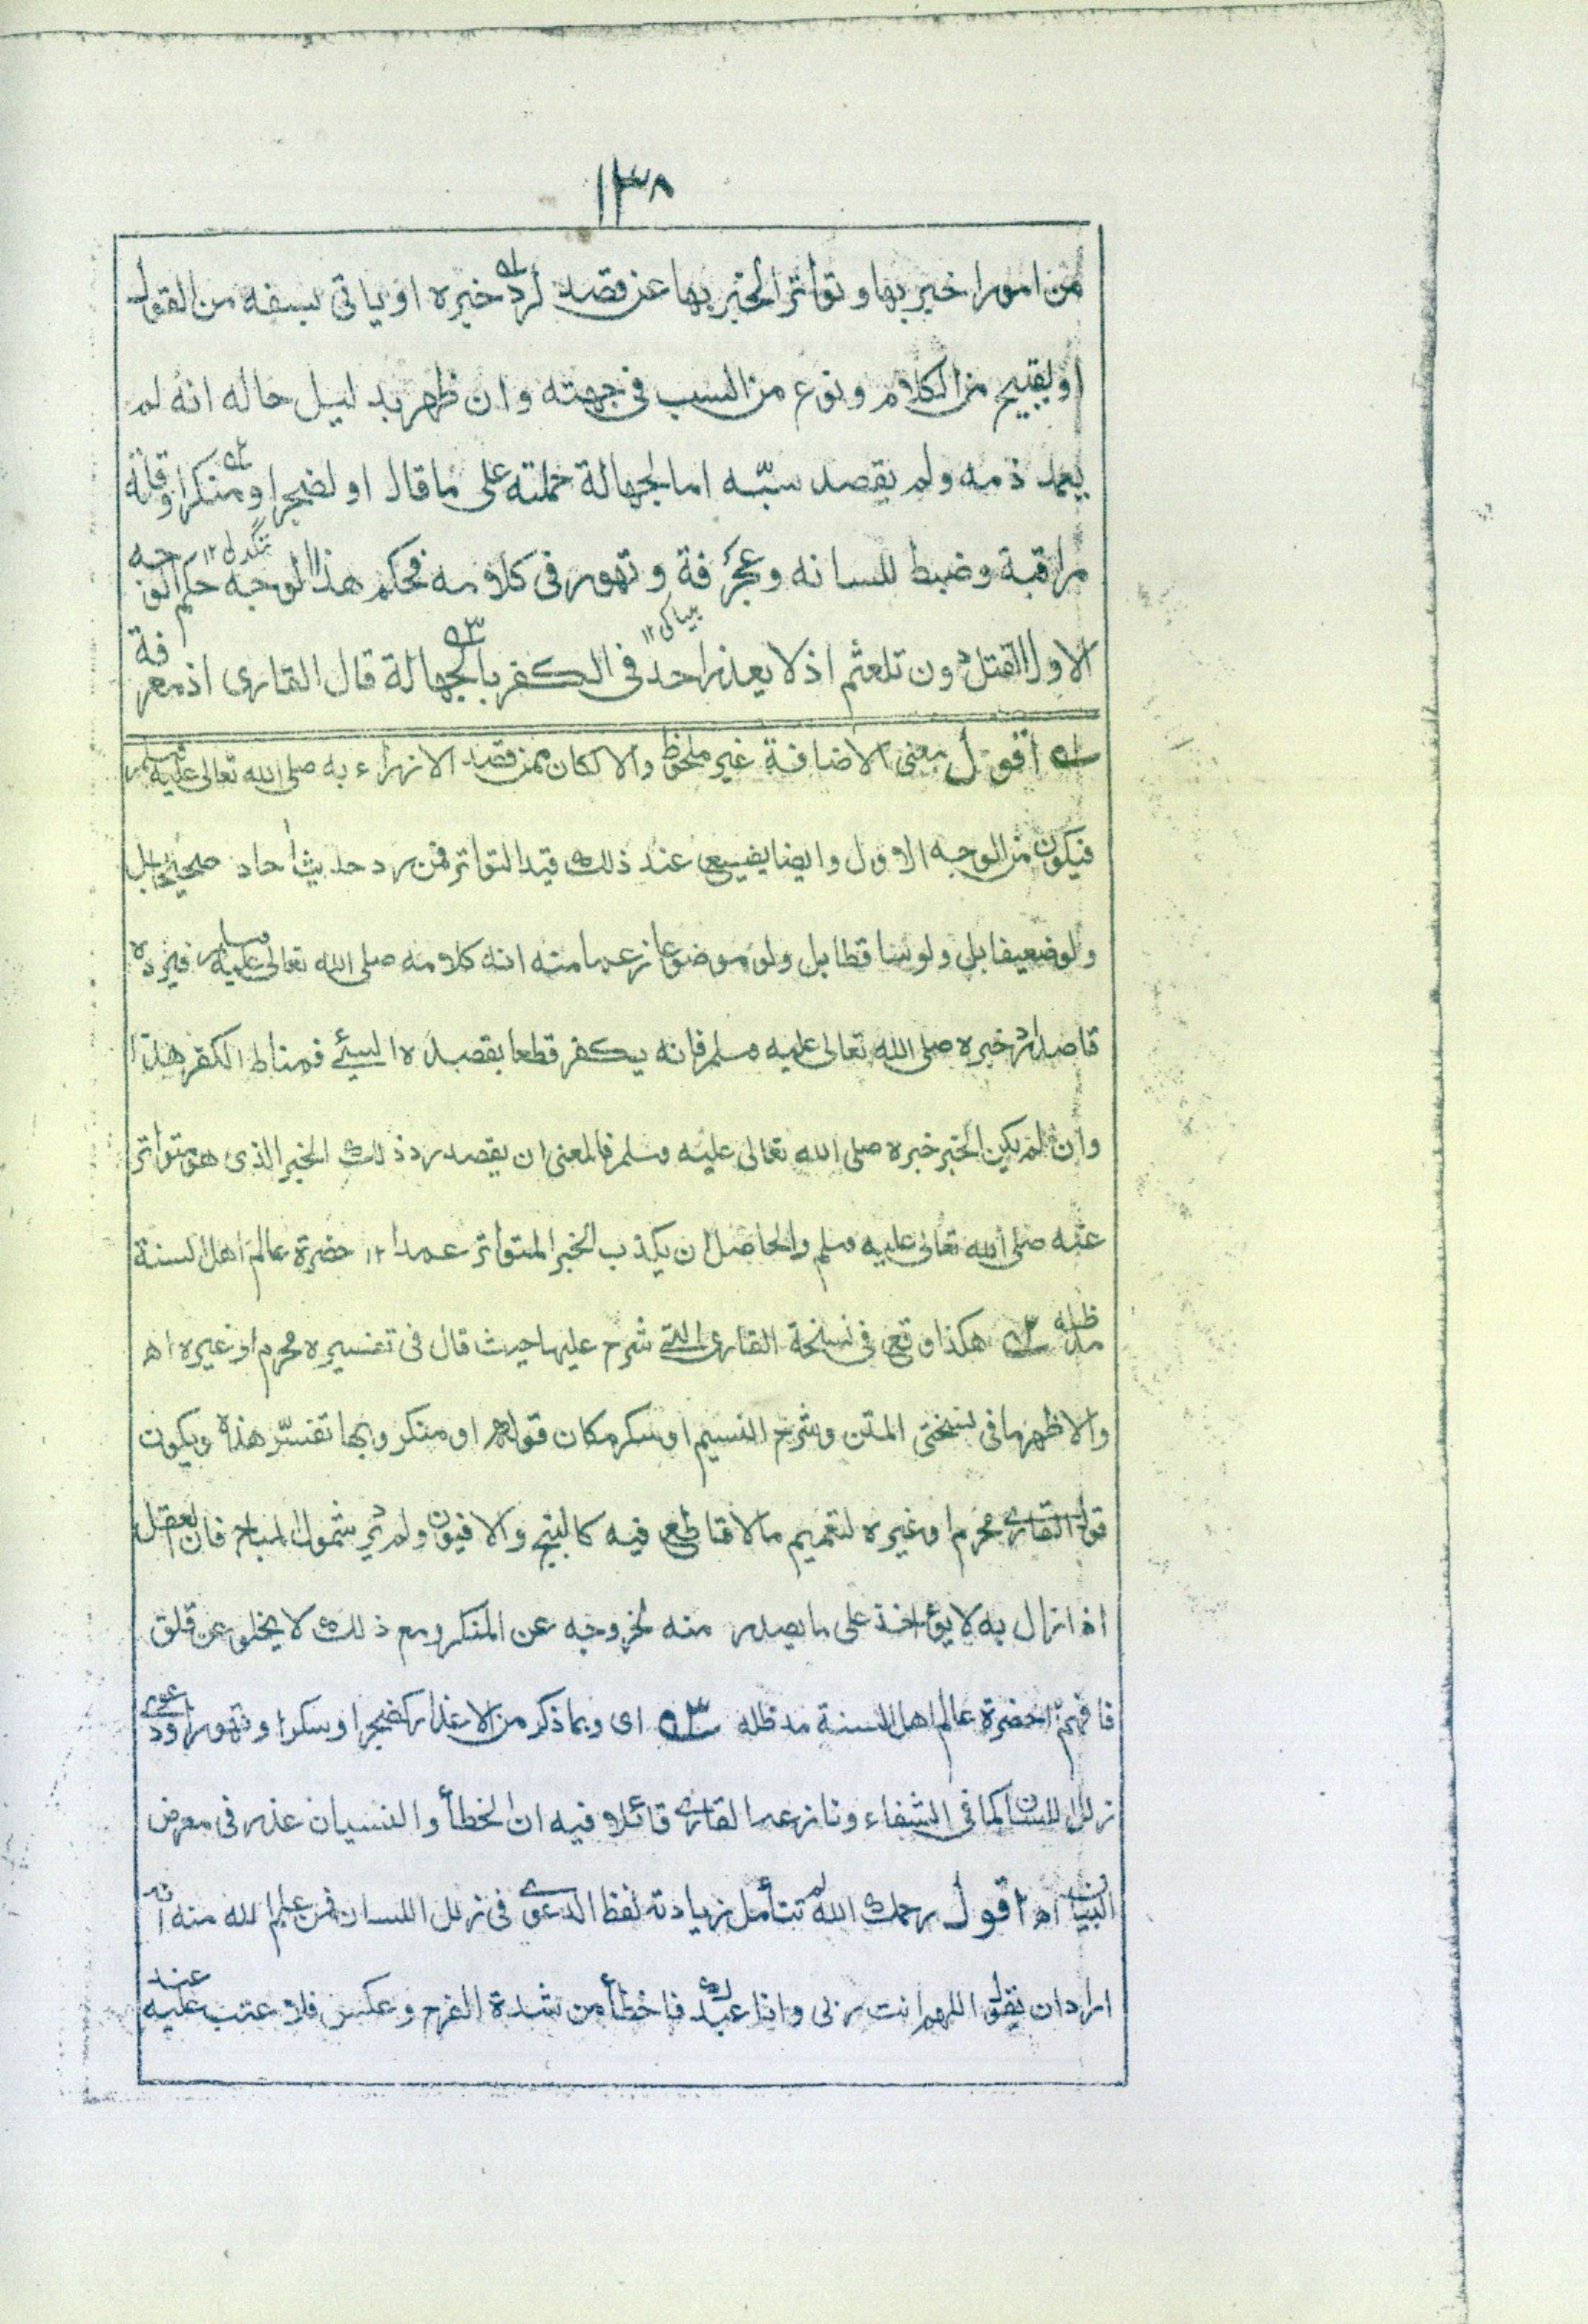 ١٣٨
من امور اخبر بها وتواتر الخبر بها عن قصد لرد١ه خبره او ياتى بسفه من القول
او بقبيح من الكلام ونوع من السب فى جهته وان ظهر بدليل حاله انه لم
يعمد ذمه ولم يقصد سبّه اما لجهالة حملته على ما قال او لضجر او منكر٢ه او قلة
مراقبة وضبط للسانه وعجرفة تنگدلى١٢ وتهور فى كلامه فحكم هذا الوجه حكم الوجه
الاول القتل دون تلعثم اذ لا يعذر احد بيباكى١٢ فى الكفر بالجهالة٣ه قال القارى اذ معرفة
١ه اقول معنى الاضافة غير ملحوظ والا لكان ممن قصد الازراء به صلى الله تعالى عليه وسلم
فيكون من الوجه الاول وايضا يضيع عند ذلك قيد التواتر فمن رد حديث احاد صحيحا بل
ولو ضعيفا بل ولو ساقطا بل ولو موضوعا زعما منه انه كلامه صلى الله تعالى عليه وسلم فيرده
قاصدا رد خبره صلى الله تعالى عليه وسلم فانه يكفر قطعا بقصده السيئ فمناط الكفر هذا
وان لم يكن الخبر خبره صلى الله تعالى عليه وسلم فالمعنى ان يقصد رد ذلك الخبر الذى هو متواتر
عنه صلى الله تعالى عليه وسلم والحاصل ان يكذب الخبر المتواتر عمدا ١٢ حضرة عالم اهل السنة
مد ظله ٢ه هكذا وقع فى نسخة القارى التى شرح عليها حيث قال فى تفسيره محرم او غيره اھ
والاظهر ما فى نسختى المتن وشرح النسيم او سكر مكان قوله او منكر وبها تفسّر هذه ويكون
قول القارى محرم او غيره لتعميم ما لا قاطع فيه كالبنج والافيون ولم يرد شمول المباح فان العقل
اذا زال به لا يؤاخذ على ما يصدر منه لخروجه عن المنكر ومع ذلك لا يخلو عن قلق
فافهم١٢ حضرة عالم اهل السنة مد ظله ٣ه اى وبما ذكر من الاعذار كضجر او سكر او تهور او دعوى
زلل اللسان كما فى الشفاء ونازعه القارى قائلا فيه ان الخطأ والنسيان عذر فى معرض
البيان اھ اقول رحمك الله لم تتأمل زيادته لفظ الدعوى فى زلل اللسان فمن علم الله منه انه
اراد ان يقول اللهم انت ربى وانا عبدك فاخطأ من شدة الفرح وعكس فلا عتب عليه عند